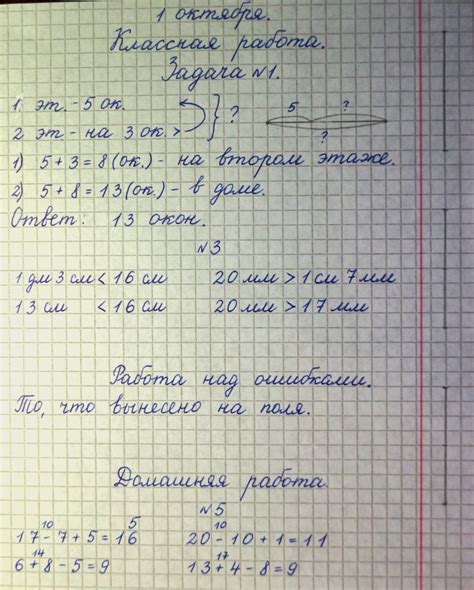 1 октября.
Классная работа.
Задача №1.
1 эт. - 5 ок.
2 эт - на 3 ок. > } ?
5 ?
?
1) 5 + 3 = 8 (ок.) - на втором этаже.
2) 5 + 8 = 13 (ок.) - в доме.
Ответ: 13 окон.
№3
1 дм 3 см < 16 см 20 мм > 1 см 7 мм
13 см < 16 см 20 мм > 17 мм
Работа над ошибками.
То, что вынесено на поля.
Домашняя работа.
№5
10 5 10
17 - 7 + 5 = 16 20 - 10 + 1 = 11
14 17
6 + 8 - 5 = 9 13 + 4 - 8 = 9